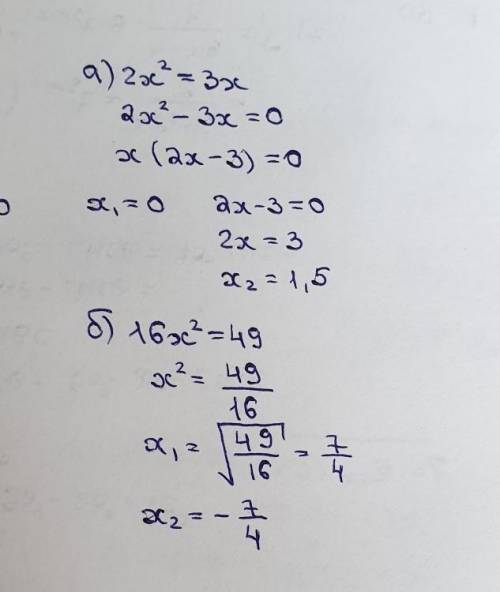 а) 2x² = 3x
2x² - 3x = 0
x (2x - 3) = 0
x₁ = 0 2x - 3 = 0
2x = 3
x₂ = 1,5
б) 16x² = 49
x² = 49/16
x₁ = √(49/16) = 7/4
x₂ = - 7/4